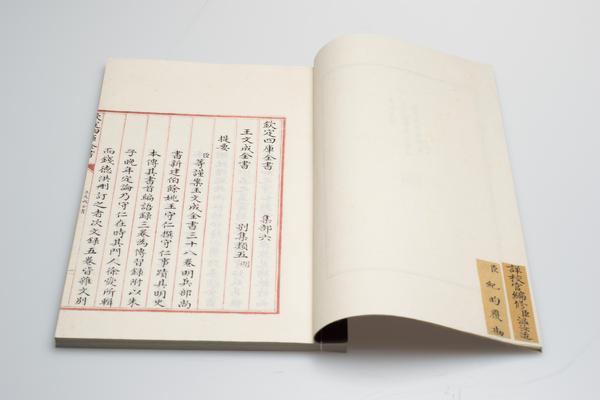 詳校官編修臣
臣紀昀覆勘
欽定四庫全書 集部六
王文成全書 別集類五 明
提要
臣等謹案王文成全書三十八卷明兵部尚
書新建伯餘姚王守仁撰守仁事蹟具明史
本傳其書首編語録三卷為傳習録附以朱
子晚年定論乃守仁在時其門人徐愛所輯
而錢德洪刪訂之者次文録五卷皆雜文別
欽定四庫全書